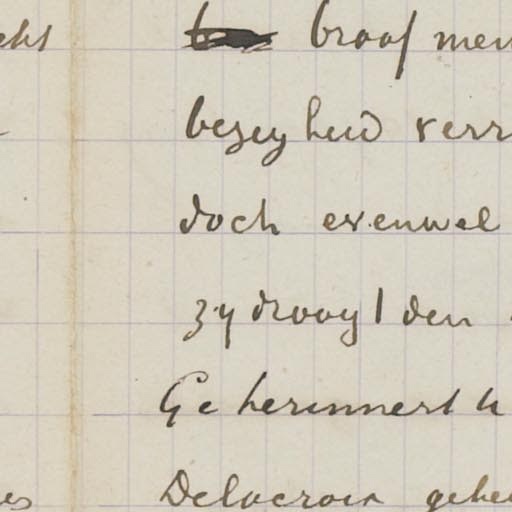 braaf men
bezigheid verr
doch evenwel
zy draagt den
Ge herinnert U
Delacroix gehe